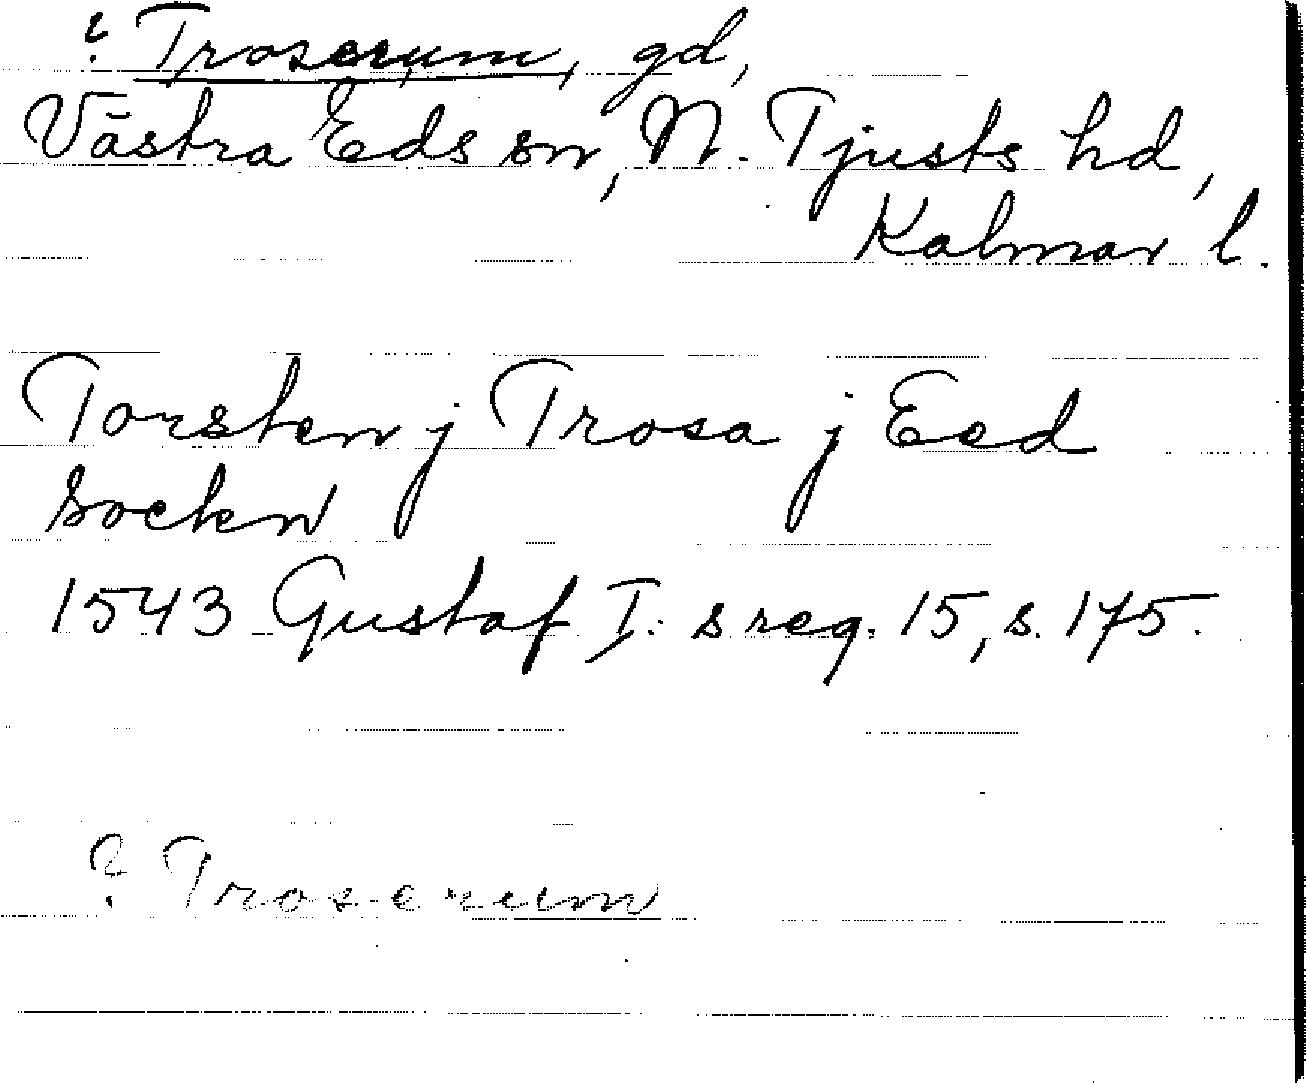 ? Troserum, gd,
Västra Eds sn, N. Tjusts hd,
Kalmar l.
Torsten j Trosa j Eed
socken
1543 Gustaf I:s reg. 15, s. 175.
? Troserum